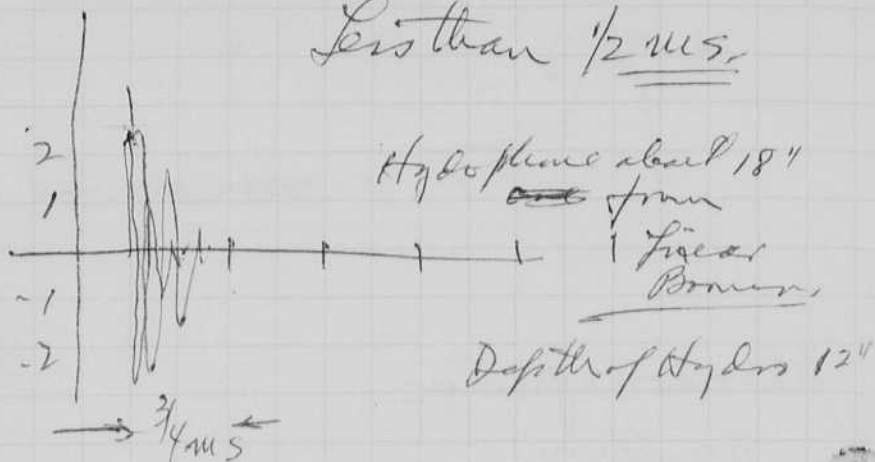 Less than 1/2 ms.
2
1
-1
-2
Hydrophone about 18"
from
Linear
Boomer,
Depth of Hydro 12"
3/4 ms